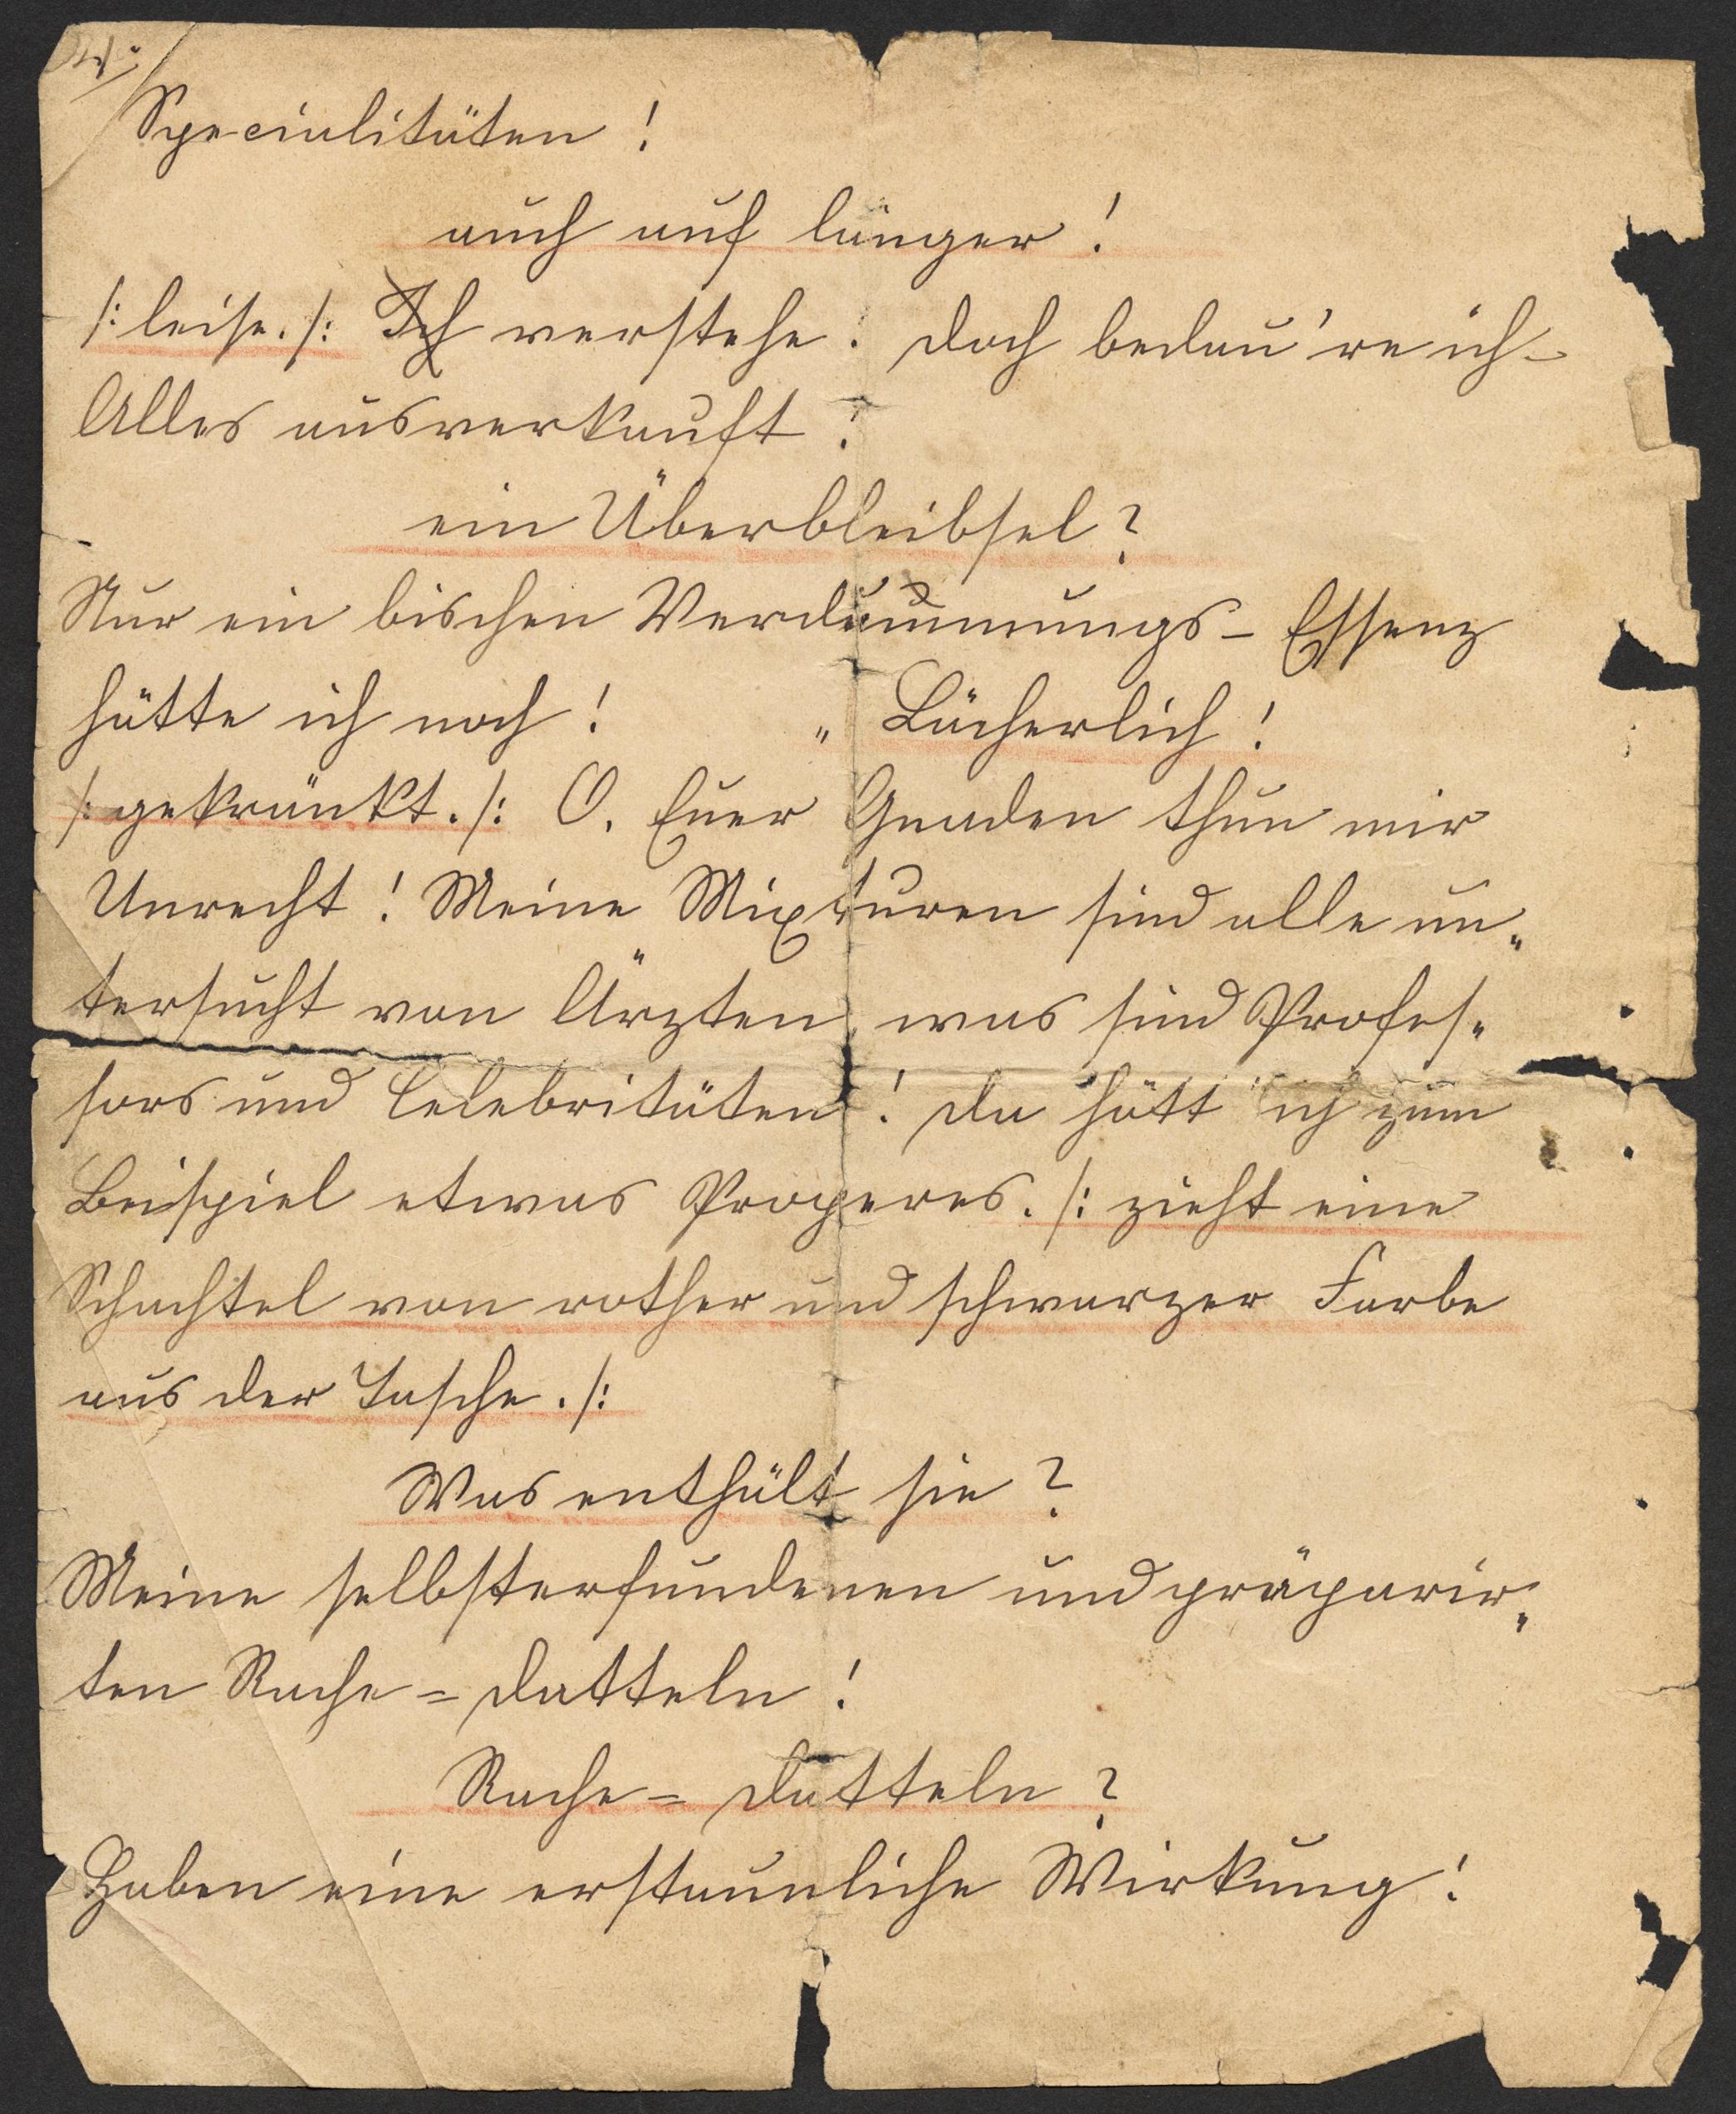 Specialitäten!
auch auf länger!
/: leise. /: Ich verstehe! Doch bedau're ich –
Alles ausverkauft!
ein Überbleibsel?
Nur ein bischen Verdummungs- Essenz
hätte ich noch! " Lächerlich!
/: gekränkt. /: O, Euer Gnaden thun mir
Unrecht! Meine Mixturen sind alle un„
tersucht von Ärzten, was sind Profes„
sors und Celebritäten! Da hätt' ich zum
Beispiel etwas Properes. /: zieht eine
Schachtel von rother und schwarzer Farbe
aus der Tasche. /:
Was enthält sie?
Meine selbsterfundenen und präparir„
ten Rache=Datteln!
Rache=Datteln?
Haben eine erstaunliche Wirkung!